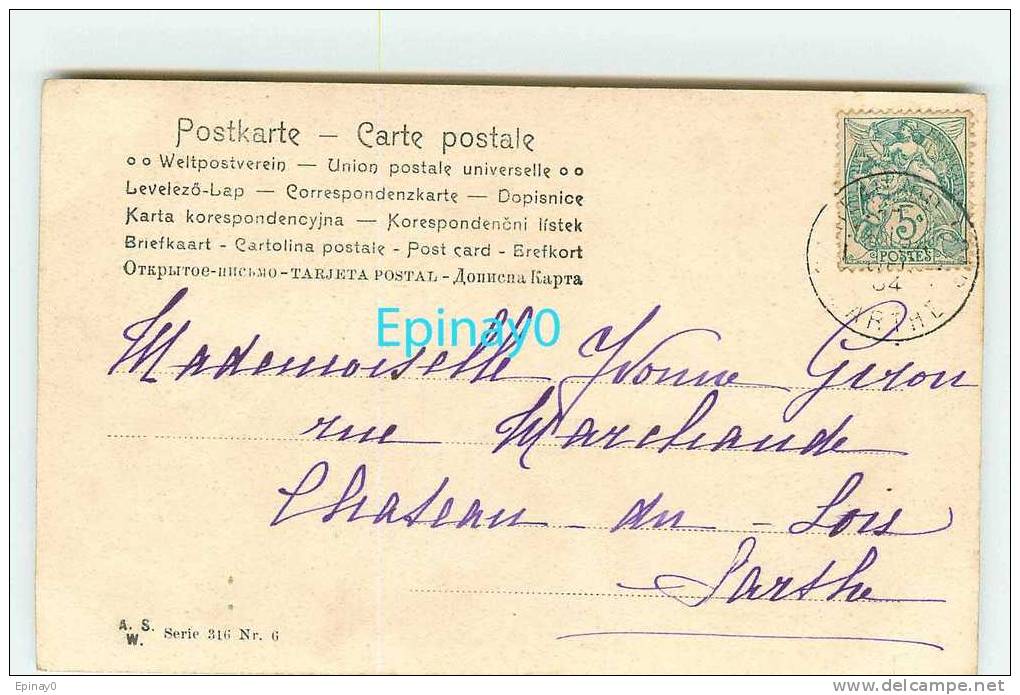 Postkarte — Carte postale
Weltpostverein — Union postale universelle
Levelező-Lap — Correspondenzkarte — Dopisnice
Karta korespondencyjna — Korespondenční lístek
Briefkaart - Cartolina postale - Post card - Brefkort
Открытое-письмо-TARJETA POSTAL-Дописна Карта
5c
POSTES
04
SARTHE
Epinay0
Mademoiselle Yvonne Giron
rue Marchande
Chateau - du - Loir
Sarthe
A. S.
W. Serie 316 Nr. 6
Epinay0
www.delcampe.net